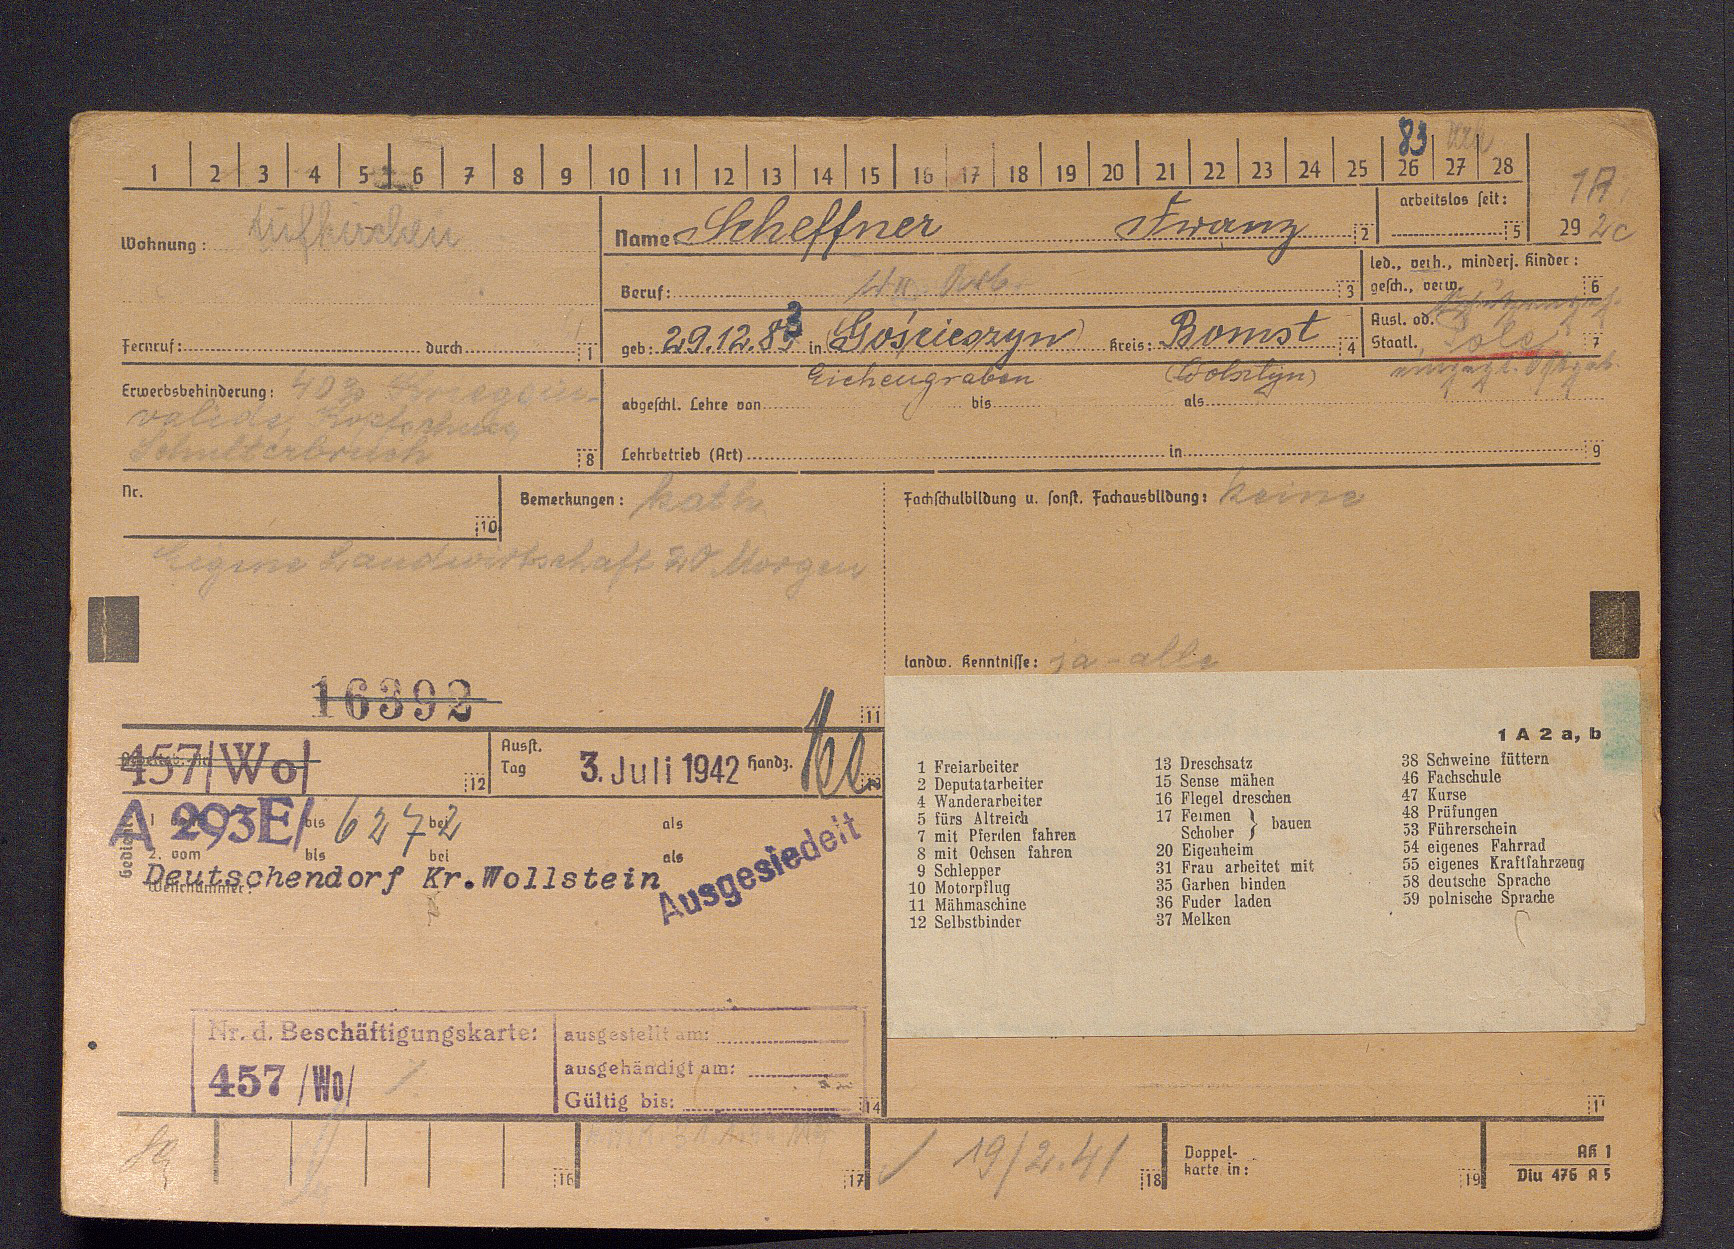 83
1 2 3 4 5 6 7 8 9 10 11 12 13 14 15 16 17 18 19 20 21 22 23 24 25 26 27 28
1A
29 2c
Wohnung:
Name: Scheffner Franz 2
arbeitslos seit:
5
Beruf: 3
led., verh., minderj. Kinder:
gesch., verw. 6
Fernruf: durch 1
geb: 29.12.83 in Gościeszyn Kreis: Bomst 4
Ausl. od.
Staatl. Pole 7
Eichengraben (Wolsztyn)
Erwerbsbehinderung: 40%
Schulterbruch 8
abgeschl. Lehre von bis als
Lehrbetrieb (Art) in 9
Nr. 10
Bemerkungen: kath.
Eigene Landwirtschaft 20 Morgen
Fachschulbildung u. sonst. Fachausbildung: keine
landw. Kenntnisse: ja - alle
16392
11
457/Wo/
12
Ausst.
Tag 3. Juli 1942 Handz.
A 293E/ bis 6272 bei als
2. vom bis bei als
Deutschendorf Kr. Wollstein
Wehrnummer:
Ausgesiedelt
1 A 2 a, b
1 Freiarbeiter
2 Deputatarbeiter
4 Wanderarbeiter
5 fürs Altreich
7 mit Pferden fahren
8 mit Ochsen fahren
9 Schlepper
10 Motorpflug
11 Mähmaschine
12 Selbstbinder
13 Dreschsatz
15 Sense mähen
16 Flegel dreschen
17 Feimen
Schober } bauen
20 Eigenheim
31 Frau arbeitet mit
35 Garben binden
36 Fuder laden
37 Melken
38 Schweine füttern
46 Fachschule
47 Kurse
48 Prüfungen
53 Führerschein
54 eigenes Fahrrad
55 eigenes Kraftfahrzeug
58 deutsche Sprache
59 polnische Sprache
Nr. d. Beschäftigungskarte:
457 /Wo/
ausgestellt am:
ausgehändigt am:
Gültig bis:
14
16
17
19/2.41
18
Doppel-
karte in:
19
AK 1
Diu 476 A 5